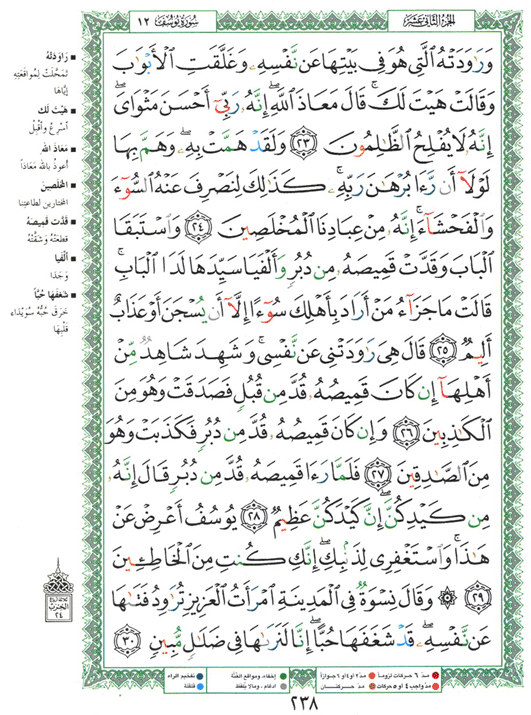 الجزء الثاني عشر
سورة يوسف ١٢
وَرَٰوَدَتْهُ ٱلَّتِى هُوَ فِى بَيْتِهَا عَن نَّفْسِهِۦ وَغَلَّقَتِ ٱلْأَبْوَٰبَ
وَقَالَتْ هَيْتَ لَكَ ۚ قَالَ مَعَاذَ ٱللَّهِ ۖ إِنَّهُۥ رَبِّىٓ أَحْسَنَ مَثْوَاىَ ۖ
إِنَّهُۥ لَا يُفْلِحُ ٱلظَّٰلِمُونَ ٢٣ وَلَقَدْ هَمَّتْ بِهِۦ ۖ وَهَمَّ بِهَا
لَوْلَآ أَن رَّءَا بُرْهَٰنَ رَبِّهِۦ ۚ كَذَٰلِكَ لِنَصْرِفَ عَنْهُ ٱلسُّوٓءَ
وَٱلْفَحْشَآءَ ۚ إِنَّهُۥ مِنْ عِبَادِنَا ٱلْمُخْلَصِينَ ٢٤ وَٱسْتَبَقَا
ٱلْبَابَ وَقَدَّتْ قَمِيصَهُۥ مِن دُبُرٍ وَأَلْفَيَا سَيِّدَهَا لَدَا ٱلْبَابِ ۚ
قَالَتْ مَا جَزَآءُ مَنْ أَرَادَ بِأَهْلِكَ سُوٓءًا إِلَّآ أَن يُسْجَنَ أَوْ عَذَابٌ
أَلِيمٌ ٢٥ قَالَ هِىَ رَٰوَدَتْنِى عَن نَّفْسِى ۚ وَشَهِدَ شَاهِدٌ مِّنْ
أَهْلِهَآ إِن كَانَ قَمِيصُهُۥ قُدَّ مِن قُبُلٍ فَصَدَقَتْ وَهُوَ مِنَ
ٱلْكَٰذِبِينَ ٢٦ وَإِن كَانَ قَمِيصُهُۥ قُدَّ مِن دُبُرٍ فَكَذَبَتْ وَهُوَ
مِنَ ٱلصَّٰدِقِينَ ٢٧ فَلَمَّا رَءَا قَمِيصَهُۥ قُدَّ مِن دُبُرٍ قَالَ إِنَّهُۥ
مِن كَيْدِكُنَّ ۖ إِنَّ كَيْدَكُنَّ عَظِيمٌ ٢٨ يُوسُفُ أَعْرِضْ عَنْ
هَٰذَا ۚ وَٱسْتَغْفِرِى لِذَنۢبِكِ ۖ إِنَّكِ كُنتِ مِنَ ٱلْخَاطِـِٔينَ
٢٩ ۞ وَقَالَ نِسْوَةٌ فِى ٱلْمَدِينَةِ ٱمْرَأَتُ ٱلْعَزِيزِ تُرَٰوِدُ فَتَىٰهَا
عَن نَّفْسِهِۦ ۖ قَدْ شَغَفَهَا حُبًّا ۖ إِنَّا لَنَرَىٰهَا فِى ضَلَٰلٍ مُّبِينٍ ٣٠
رَاوَدَتْهُ
تَمَحَّلَتْ لِمُوَاقَعَتِهِ
إِيَّاهَا
هَيْتَ لَكَ
أسْرِعْ وأقْبِلْ
مَعَاذَ الله
أعُوذُ بالله مَعَاذاً
المُخْلَصِينَ
المختارين لطاعتنا
قَدَّتْ قَمِيصَهُ
قَطَعَتْهُ وَشَقَّتْهُ
أَلْفَيَا
وَجَدَا
شَغَفَهَا حُبًّا
خَرَقَ حُبُّهُ سُوَيْدَاء
قَلْبِهَا
الحزب
٢٤
مدّ ٦ حركات لزوماً
مدّ ٢ أو ٤ أو ٦ جوازاً
إخفاء، ومواقع الغُنَّة
تفخيم الراء
مدّ واجب ٤ أو ٥ حركات
مدّ حركتان
إدغام، وما لا يُلفظ
قلقلة
٢٣٨